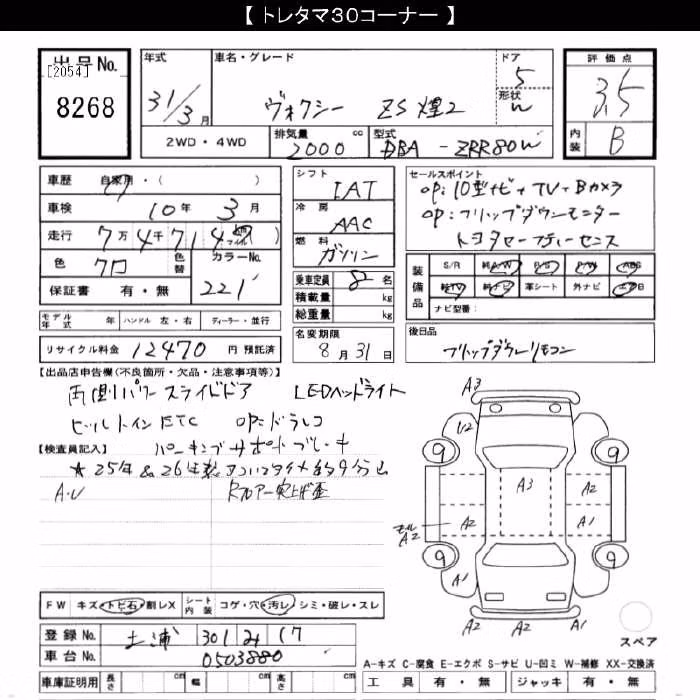 【 トレタマ３０コーナー 】
出品No.
[2054]
8268
年式
31/3月
車名・グレード
ヴォクシー ZS 煌2
ドア
5
形状
W
評価点
3.5
内装
B
2WD・4WD
排気量 2000 cc
型式 DBA - ZRR80W
車歴 自家用・( )
車検 10年 3月
走行 7万4千
色 クロ
色替
カラーNo. 221
保証書 有・無
モデル年式 年 ハンドル 左・右 ディーラー・並行
リサイクル料金 12470 円 預託済
シフト IAT
冷房 AAC
燃料 ガソリン
乗車定員 8名
積載量 kg
総重量 kg
名変期限
8月31日
セールスポイント
op:10型ナビ+TV+Bカメラ
op:フリップダウンモニター
トヨタセーフティーセンス
装備品
S/R 純A/W P/S P/W ABS
純TV 純ナビ 革シート 外ナビ エアB
ナビ型番:
後日品
フリップダウンリモコン
【出品店申告欄(不良箇所・欠品・注意事項等)】
両側パワースライドドア LEDヘッドライト
ビルトインETC op:ドラレコ
パーキングサポートブレーキ
【検査員記入】
A.U
Rフロアー突上げ歪
A3
U2
9
9
A3
A2
モール
A2
A2
A1
9
9
A1
A2
A2
スペア
FW キズ・トビ石・割レX
シート内装 コゲ・穴・汚レ・シミ・破レ・スレ
登録No. 土浦 301 17
車台No. 0503880
車庫証明用 長さ cm 幅 cm 高さ cm
A-キズ C-腐食 E-エクボ S-サビ U-凹ミ W-補修 XX-交換済
工具 有・無 ジャッキ 有・無